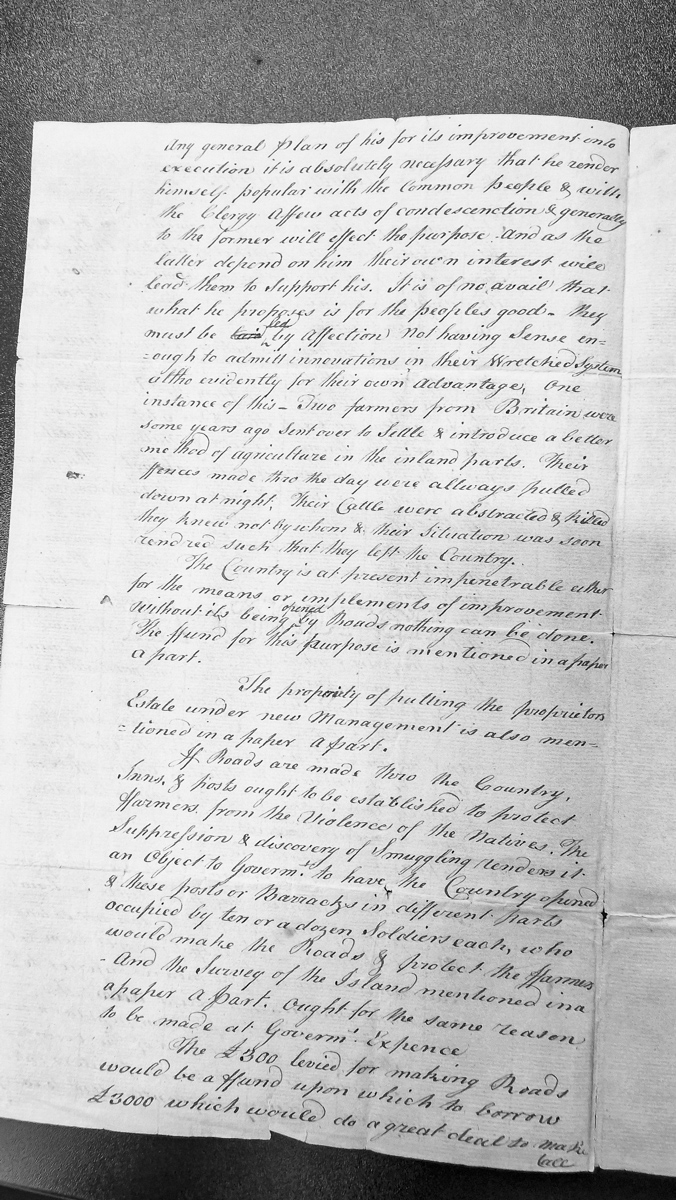 any general plan of his for its improvement into
execution it is absolutely necessary that he render
himself popular with the Common people & with
the Clergy Affew acts of condescenction & generally
to the former will effect the purpose. And as the
latter depend on him their own interest will
lead them to Support his. It is of no avail that
what he proposes is for the peoples good - they
must be led by Affection not having Sense en=
=ough to admitt innovations in their Wretched System
altho evidently for their own advantage, One
instance of this - Two farmers from Britain were
some years ago Sent over to Settle & introduce a better
method of agriculture in the inland parts. Their
ffences made thro the day were allways pulled
down at night, Their Cattle were abstracted & killed
they knew not by whom & their Situation was soon
rendred such that they left the Country.
The Country is at present impenetrable either
for the means or implements of improvement
without its being opened by Roads nothing can be done.
The ffund for this purpose is mentioned in a paper
a part.
The propriety of putting the proprietors
Estate under new Management is also men=
=tioned in a paper a part.
If Roads are made thro the Country,
Inns, & posts ought to be established to protect
ffarmers from the Violence of the Natives. The
Suppression & discovery of Smuggling renders it
an Object to Governmt. to have the Country opened
& these posts or Barracks in different parts
occupied by ten or a dozen Soldiers each, who
would make the Roads & protect the ffarmers
- And the Survey of the Island mentioned in a
a paper a part. ought for the same reason
to be made at Governmt. Expence
The £300 levied for making Roads
would be a ffund upon which to borrow
£3000 which would do a great deal to make